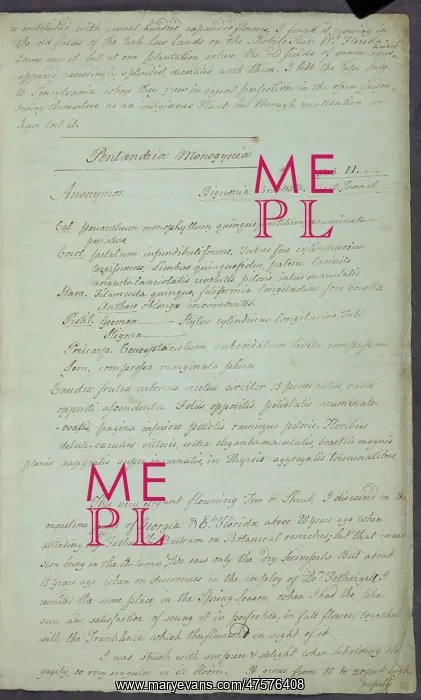 is contributed with several hundred expanded flowers. I found it growing in
the old fields of the rich low lands on the Mobile River W. Florida
appears exceedingly splendid, decorated with them. I sent the ripe seeds
to Pensylvania where they grew in equal perfection in the open garden,
sowing themselves as an indiginous Plant, but through inattention we
have lost it.
Pentandria Monogynia
Tab. II.
Anonymos. Bignonia Bracteata
Cal. perianthium monophyllum, quinquepartitum acuminatum
persistens
Corol. petalum infundibuliforme. Tubus fere cylindraceus
longissimus, Limbus quinquefidus, patens. Laciniis
angusto-lanceolatis revolutis pilosis intus maculatis
Stam. Filamenta quinque, filiformia longitudine fere corolla
Anthera oblonga incumbentes.
Pistil. Germen Stylus cylindricus longitudine Tubi
Stigma
Pericarp. Conceptaculum subcordatum leviter compressum
Sem. compressa marginata plura
Caudex frutex arborius erectus circiter 15 pedes altus, ramis
oppositis ascendentes. Foliis oppositis petiolatis acuminato
-ovatis, pagina inferiore petiolis ramisque pilosis. Floribus
maculatis, bracteis magnis
planis incarnatis, in Thyrsis aggregatis terminalibus.
This very elegant flowering Tree or Shrub I discovered in the
maritime parts of Georgia & Et. Florida above 20 years ago when
attending my Father Jn. Bartram on Botanical researches; but that occa-
sion being in the Autumn, We saw only the dry Seedvessels, But about
15 years ago when on discoveries in the employ of Dor. Fothergill, I
revisited the same place in the Spring Season, when I had the plea-
sure and satisfaction of seeing it in perfection, in full flower, together
with the Franklinia which then flowered in sight of it.
I was struck with surprise & delight when beholding its
so very singular in its bloom. It grows from 15 to 20 feet high
ME
PL
ME
PL
www.maryevans.com/47576408